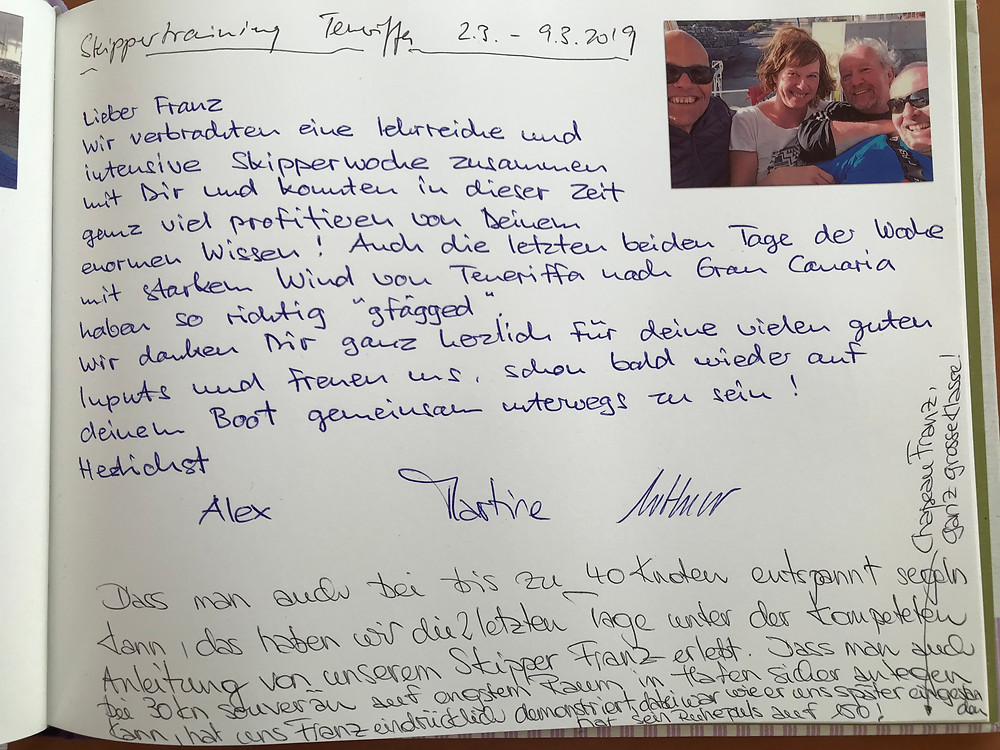 Skippertraining Teneriffa 2.3. - 9.3.2019
Lieber Franz
wir verbrachten eine lehrreiche und
intensive Skipperwoche zusammen
mit Dir und konnten in dieser Zeit
ganz viel profitieren von Deinem
enormen Wissen! Auch die letzten beiden Tage der Woche
mit starkem Wind von Teneriffa nach Gran Canaria
haben so richtig "gfägged".
Wir danken Dir ganz herzlich für deine vielen guten
Inputs und freuen uns, schon bald wieder auf
deinem Boot gemeinsam unterwegs zu sein!
Herzlichst
Alex Martine
Dass man auch bei bis zu 40 Knoten entspannt segeln
kann, das haben wir die 2 letzten Tage unter der kompeteten
Anleitung von unserem Skipper Franz erlebt. Dass man auch
bei 30 kn souverän auf engstem Raum in Häfen sicher anlegen
kann, hat uns Franz eindrücklich demonstriert, dabei war wie er uns später eingestan
den
hat sein Ruhepuls auf 150!
Chapeau Franz,
ganz grosse Klasse!